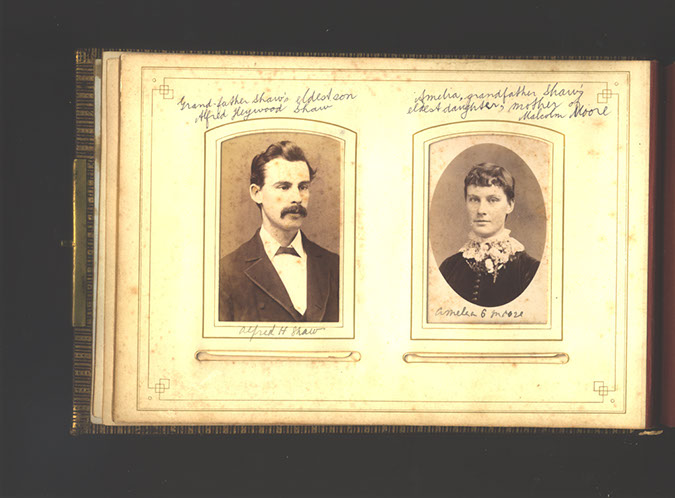 Grand-father Shaw's eldest son
Alfred Heywood Shaw
Amelia, grandfather Shaw's
eldest daughter, mother of
Malcolm Moore
Alfred H Shaw
Amelia G Moore